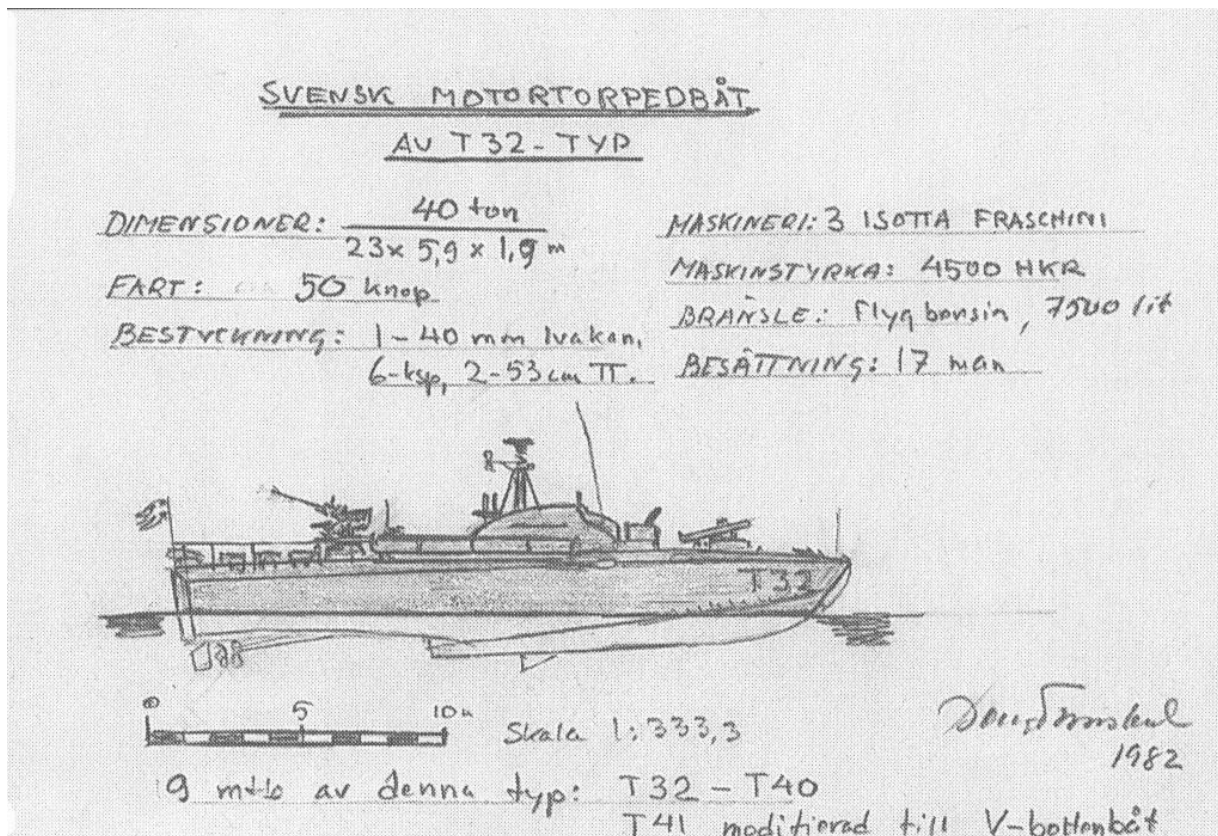 SVENSK MOTORTORPEDBÅT
AV T32-TYP
DIMENSIONER: 40 ton
23 x 5,9 x 1,9 m
FART: 50 knop
BESTYCKNING: 1-40 mm lvakan,
6-ksp, 2-53 cm TT.
MASKINERI: 3 ISOTTA FRASCHINI
MASKINSTYRKA: 4500 HKR
BRÄNSLE: Flygbensin, 7500 lit
BESÄTTNING: 17 man
T32
0 5 10 m
Skala 1:333,3
1982
9 mtb av denna typ: T32 - T40
T41 modifierad till V-bottenbåt